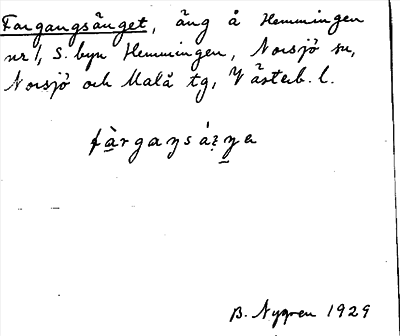 Fargangsänget, äng å Hemmingen
nr 1, S. byn Hemmingen, Norsjö sn,
Norsjö och Malå tg, Västerb. l.
B. Nygren 1929